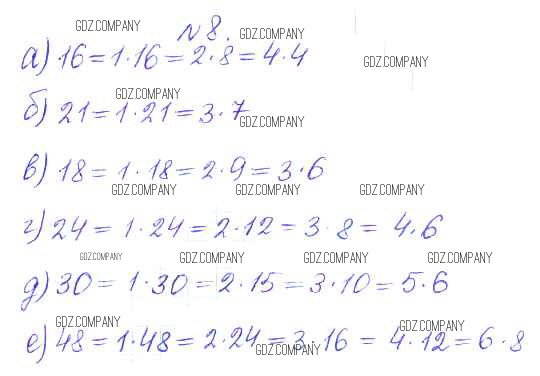 GDZ.COMPANY
№ 8.
GDZ.COMPANY
а) 16 = 1·16 = 2·8 = 4·4
GDZ.COMPANY
GDZ.COMPANY
б) 21 = 1·21 = 3·7
GDZ.COMPANY
в) 18 = 1·18 = 2·9 = 3·6
GDZ.COMPANY GDZ.COMPANY GDZ.COMPANY
г) 24 = 1·24 = 2·12 = 3·8 = 4·6
GDZ.COMPANY GDZ.COMPANY GDZ.COMPANY GDZ.COMPANY
д) 30 = 1·30 = 2·15 = 3·10 = 5·6
GDZ.COMPANY GDZ.COMPANY
е) 48 = 1·48 = 2·24 = 3·16 = 4·12 = 6·8
GDZ.COMPANY